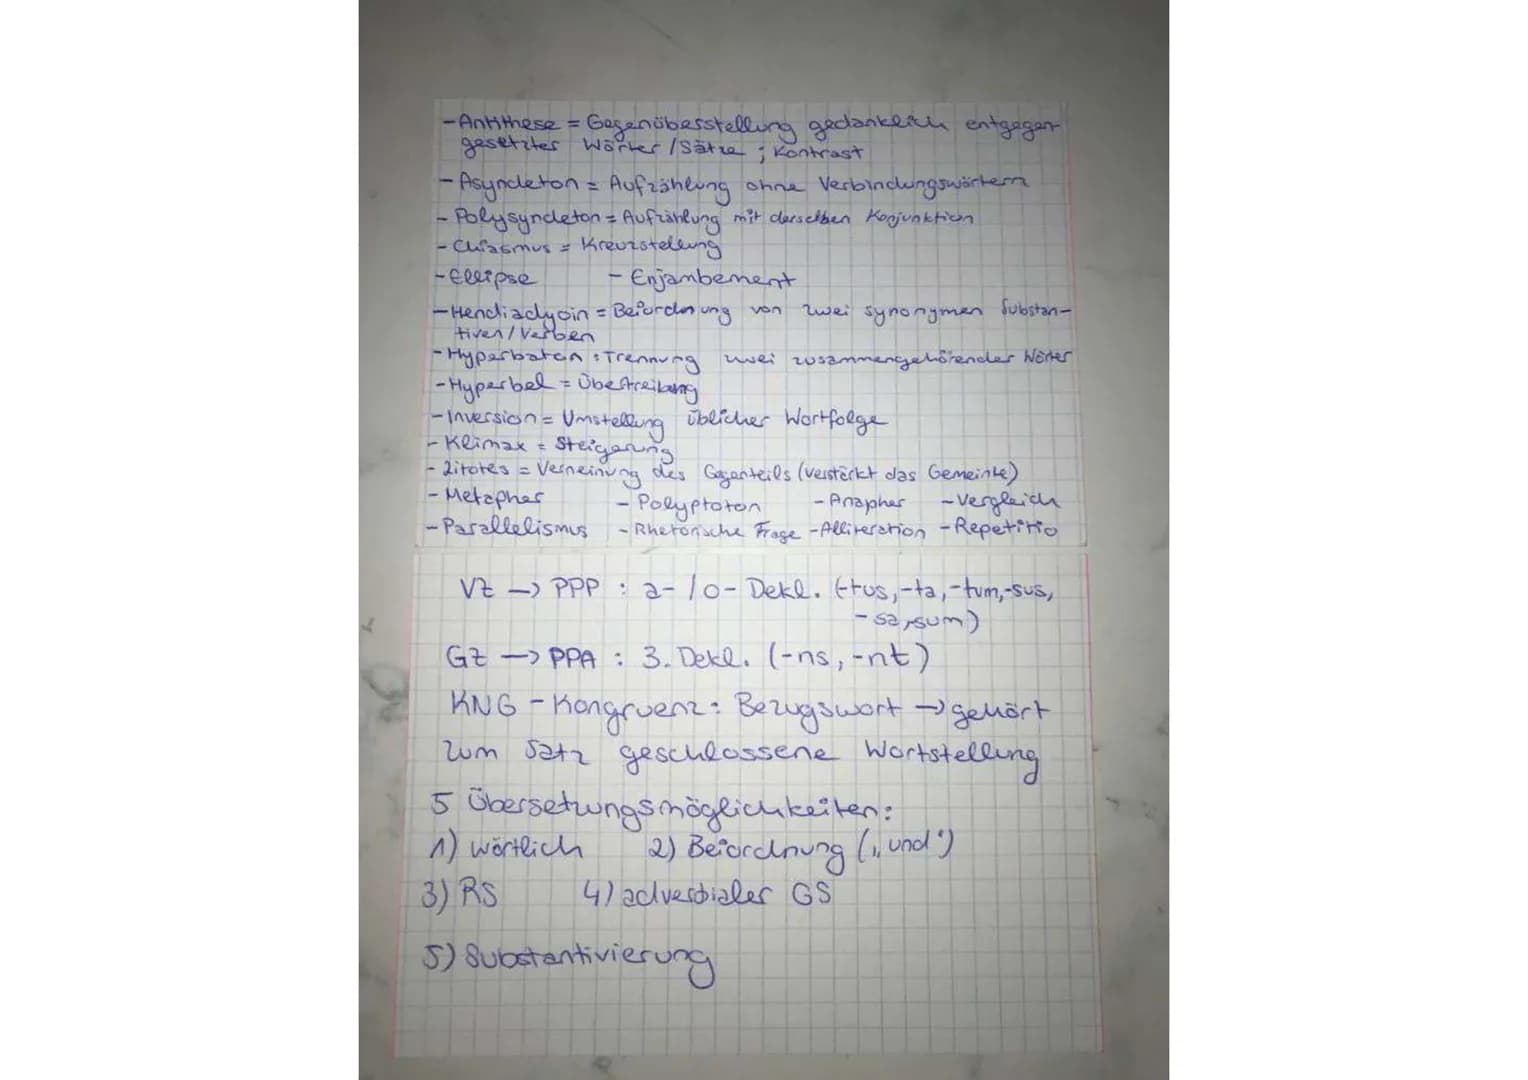 - Antithese = Gegenüberstellung gedanklich entgegen-
gesetzter Wörter / Sätze ; Kontrast
- Asyndeton = Aufzählung ohne Verbindungswörtern
- Polysyndeton = Aufzählung mit derselben Konjunktion
- Chiasmus = Kreuzstellung
- Ellipse - Enjambement
- Hendiadyoin = Beiordnung von zwei synonymen Substan-
tiven / Verben
- Hyperbaton : Trennung zwei zusammengehörender Wörter
- Hyperbel = Übertreibung
- Inversion = Umstellung üblicher Wortfolge
- Klimax = Steigerung
- Litotes = Verneinung des Gegenteils (verstärkt das Gemeinte)
- Metapher - Polyptoton - Anapher - Vergleich
- Parallelismus - Rhetorische Frage - Alliteration - Repetitio
VZ → PPP : a- / o- Dekl. (-tus, -ta, -tum, -sus,
-sa, sum)
GZ → PPA : 3. Dekl. (-ns, -nt)
KNG - Kongruenz: Bezugswort → gehört
zum Satz geschlossene Wortstellung
5 Übersetzungsmöglichkeiten:
1) wörtlich 2) Beiordnung („und")
3) RS 4) adverbialer GS
5) Substantivierung